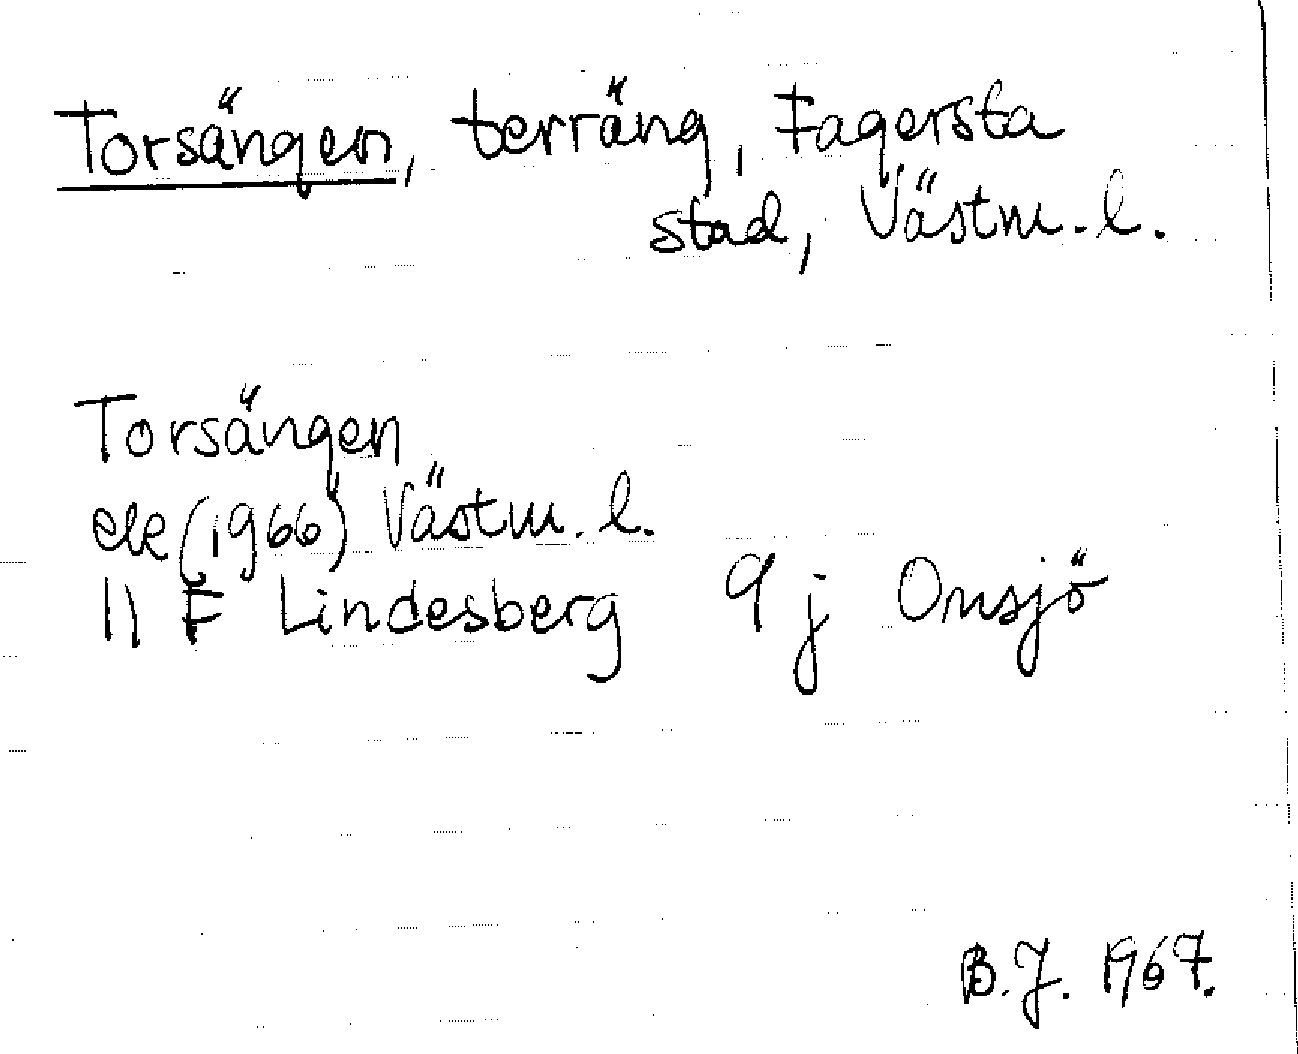 Torsängen, terräng, Fagersta
stad, Västm. l.
Torsängen
ek (1966) Västm. l.
11 F Lindesberg 9 j Onsjö
B.J. 1967.